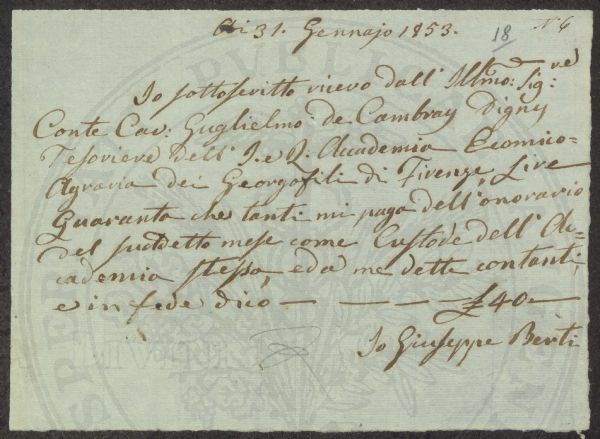 Adi 31. Gennajo 1853.
18
N. 6
Io sottoscritto ricevo dall' Illmo: Sig:re
Conte Cav: Guglielmo de Cambray Digny
Tesoriere dell' I. e R. Accademia Ecomico-
Agraria dei Georgofili di Firenze, Lire
Quaranta che tanti mi paga dell' onorario
del suddetto mese come Custode dell' Ac=
cademia stessa, e da me dette contanti,
e in fede dico — — — — £ 40 —
Io Giuseppe Berti